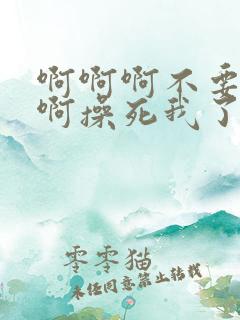 啊啊啊不要
啊操死我了
零零猫
未经同意禁止转载